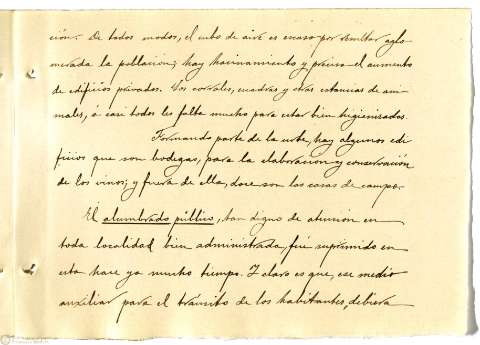 ción. De todos modos, el cubo de aire es escaso por resultar aglo-
merada la población; hay hacinamiento y precisa el aumento
de edificios privados. Los corrales, cuadras y otras estancias de ani-
males, á casi todos les falta mucho para estar bien higienizados.
Formando parte de la urbe, hay algunos edi-
ficios que son bodegas, para la elaboración y conservación
de los vinos; y fuera de ella, doce son las casas de campo.
El alumbrado público, tan digno de atención en
toda localidad bien administrada, fué suprimido en
esta hace ya mucho tiempo. Y claro es que, ese medio
auxiliar para el tránsito de los habitantes, debiera